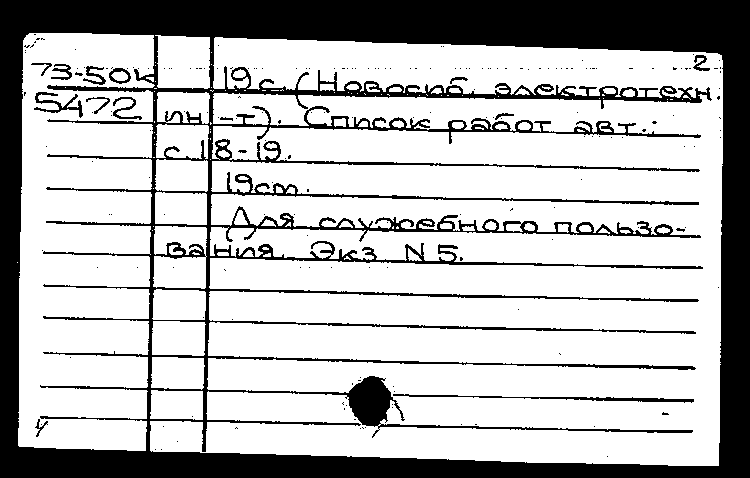 2
73-50к 19 с. (Новосиб. электротехн.
5472 ин-т). Список работ авт.:
с. 18-19.
19 см.
Для служебного пользо-
вания. Экз N 5.